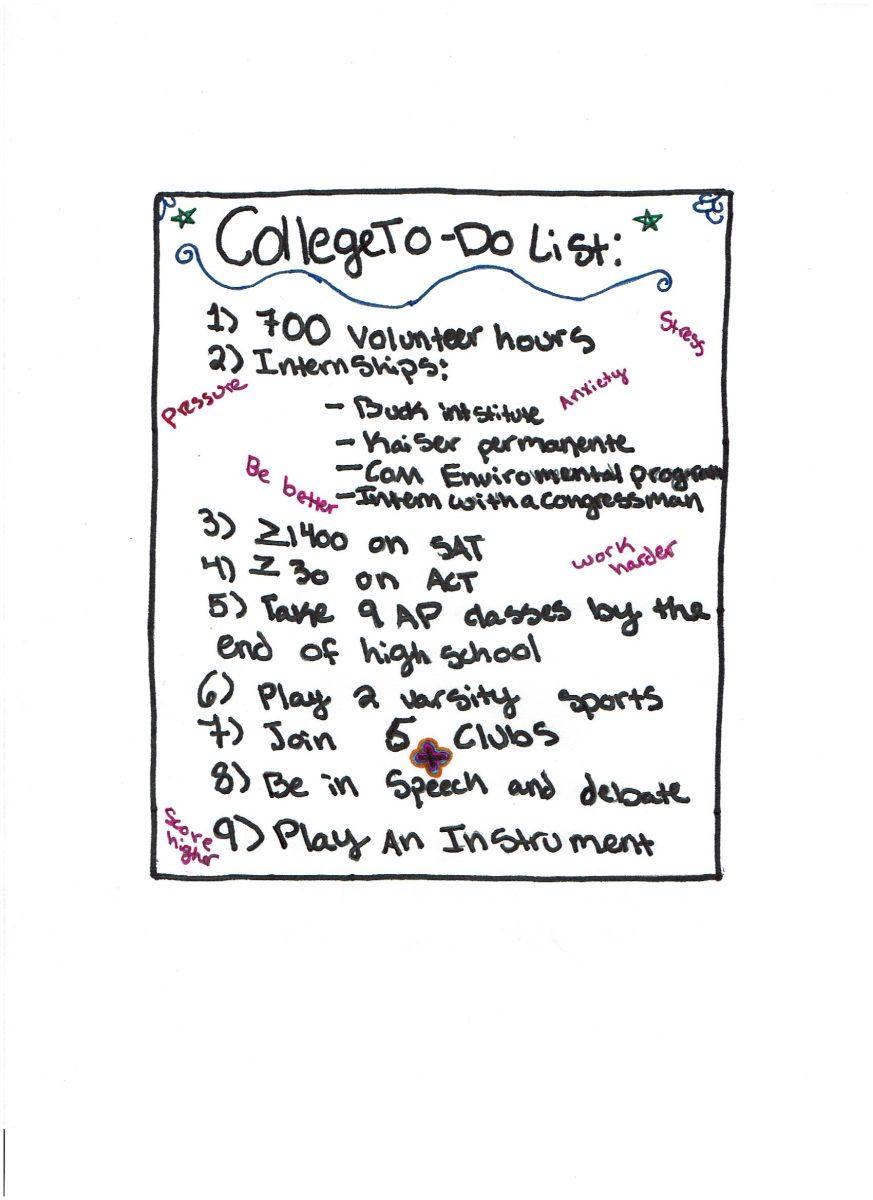 College To-Do List:
1) 700 Volunteer hours
Stress
2) Internships:
Pressure
Anxiety
- Buck intstitute
- Kaiser permanente
Be better
- Com Enviromental program
- Intern with a congressman
3) ≥1400 on SAT
work
harder
4) ≥ 30 on ACT
5) Take 9 AP classes by the
end of high school
6) Play 2 varsity sports
7) Join 5 Clubs
8) Be in Speech and debate
Score
higher
9) Play An Instrument